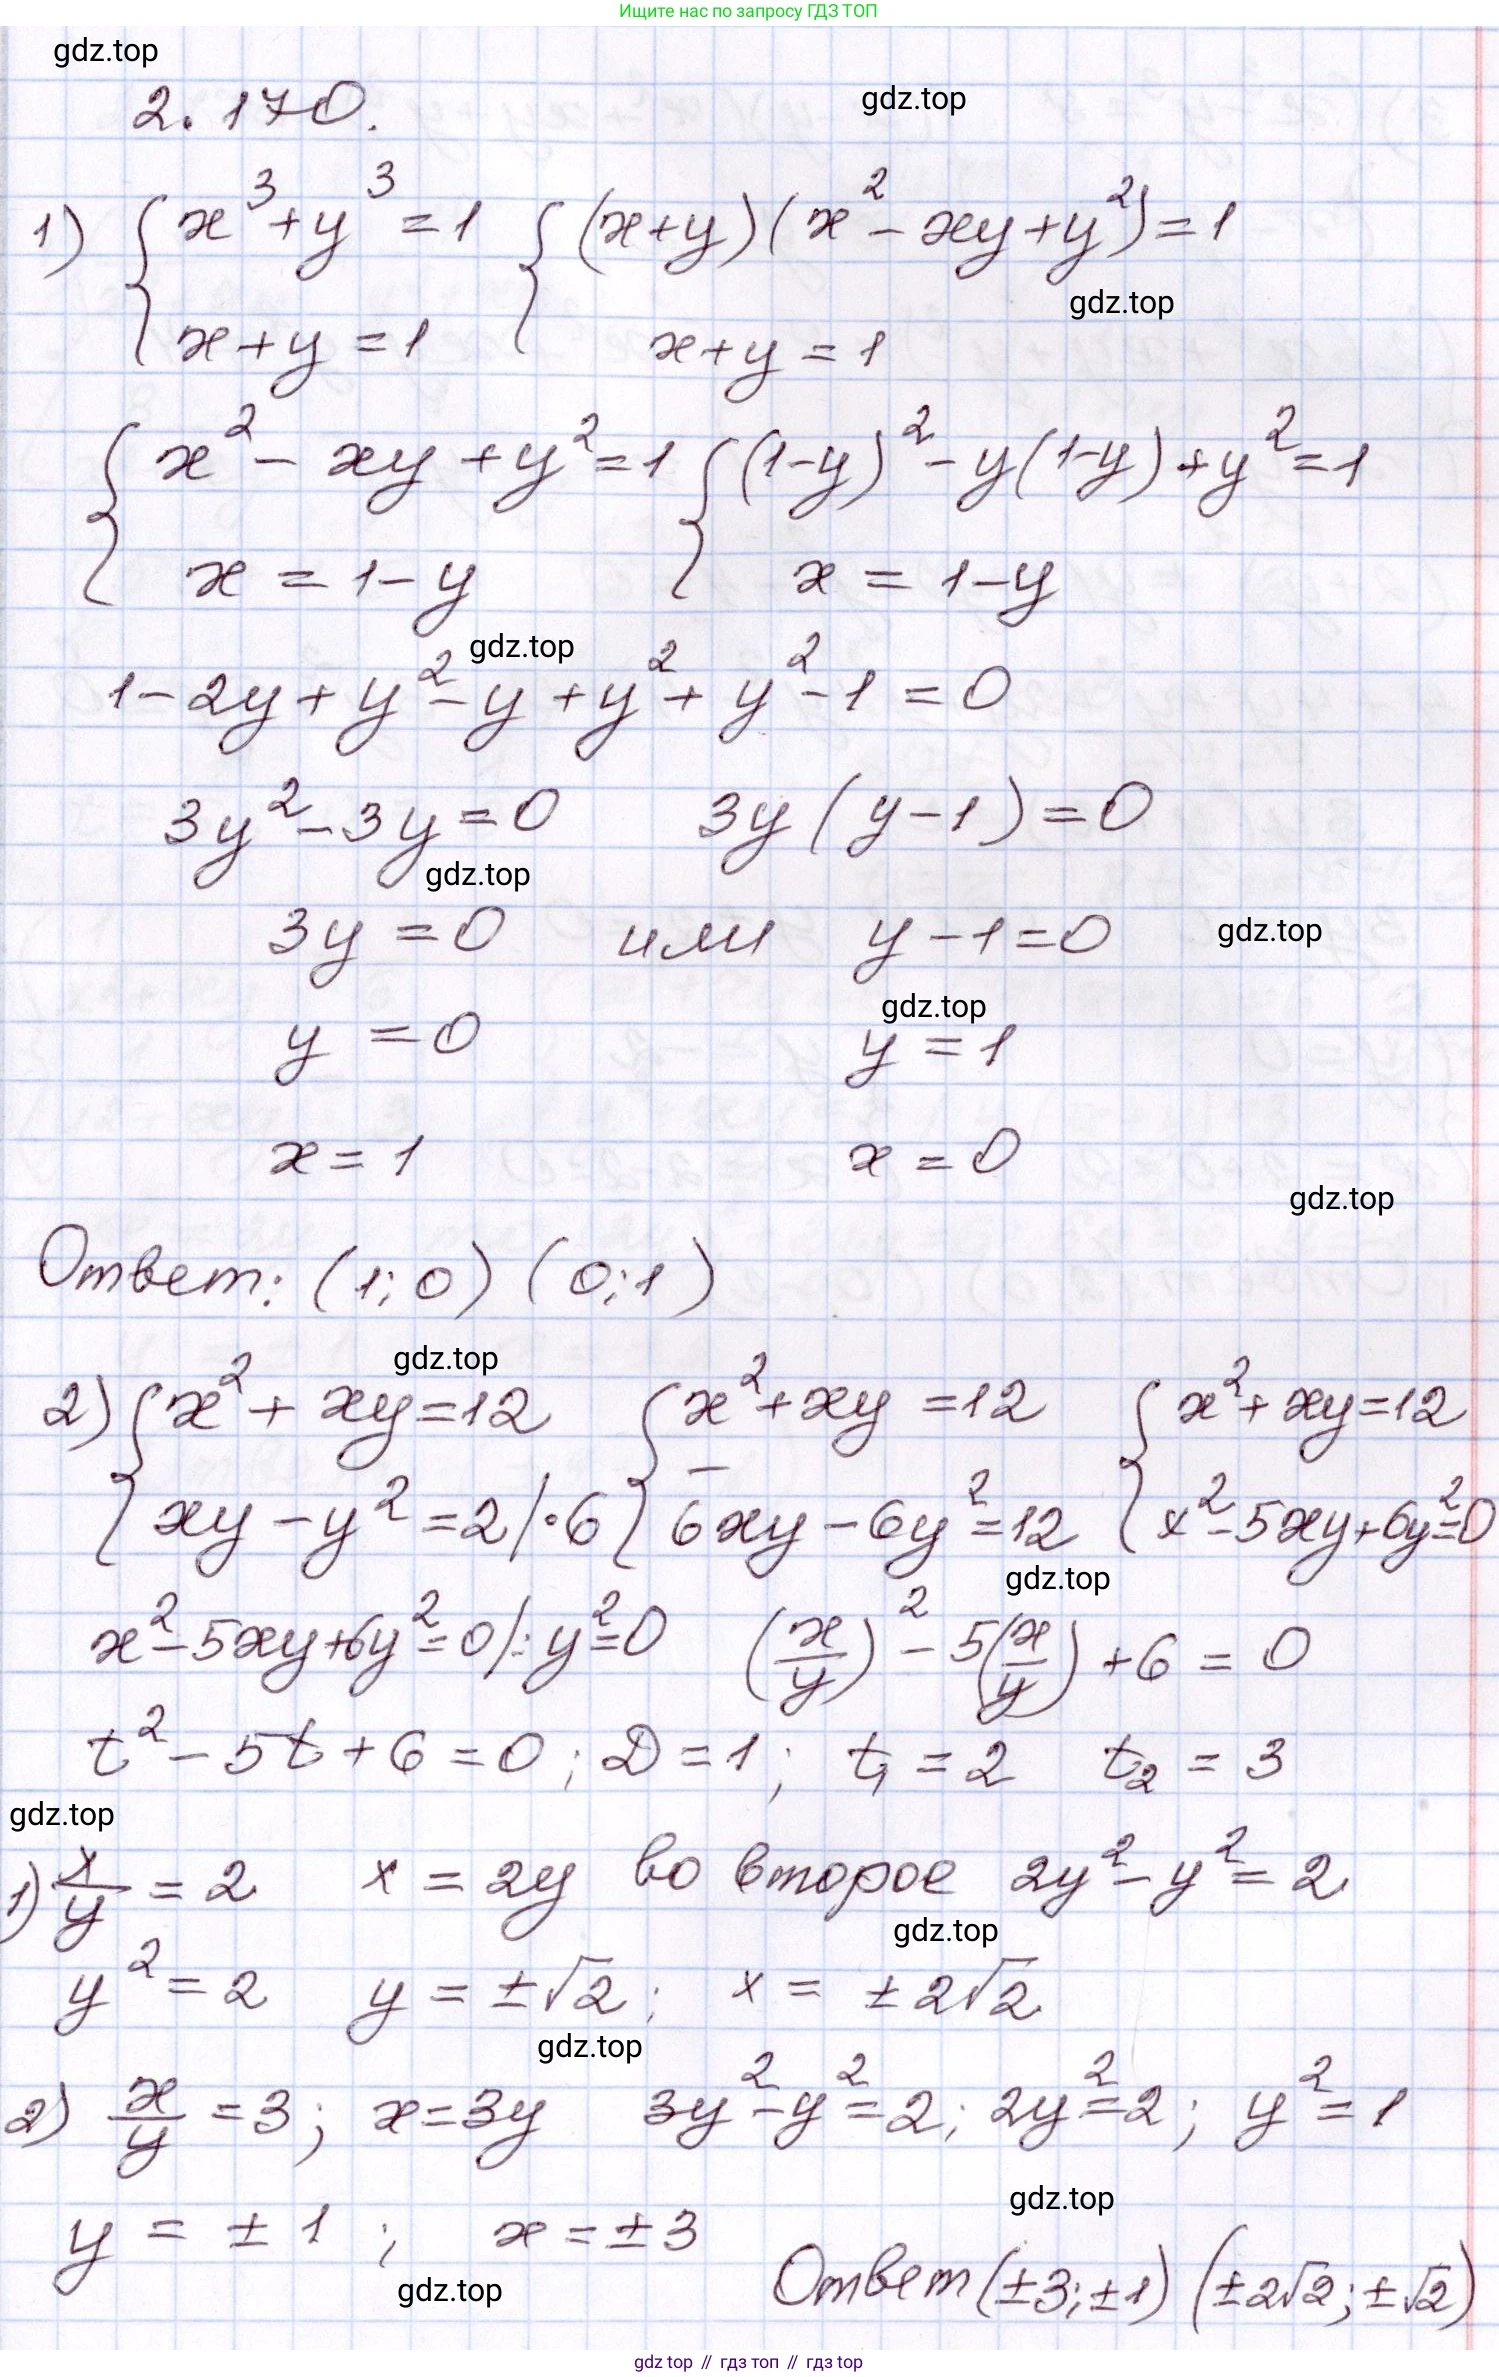 Ищите нас по запросу ГДЗ ТОП
gdz.top
2.170.
gdz.top
1) { x³ + y³ = 1 { (x+y)(x² - xy + y²) = 1
gdz.top
x + y = 1 x + y = 1
{ x² - xy + y² = 1 { (1-y)² - y(1-y) + y² = 1
x = 1 - y x = 1 - y
gdz.top
1 - 2y + y² - y + y² + y² - 1 = 0
3y² - 3y = 0 3y(y-1) = 0
gdz.top
3y = 0 или y - 1 = 0
gdz.top
gdz.top
y = 0 y = 1
x = 1 x = 0
gdz.top
Ответ: (1; 0) (0; 1)
gdz.top
2) { x² + xy = 12 { x² + xy = 12 { x² + xy = 12
–
xy - y² = 2 |·6 6xy - 6y² = 12 x² - 5xy + 6y² = 0
gdz.top
x² - 5xy + 6y² = 0 |: y² = 0 (x/y)² - 5(x/y) + 6 = 0
t² - 5t + 6 = 0; D = 1; t₁ = 2 t₂ = 3
gdz.top
1) x/y = 2 x = 2y во второе 2y² - y² = 2
gdz.top
y² = 2 y = ±√2; x = ±2√2
gdz.top
2) x/y = 3; x = 3y 3y² - y² = 2; 2y² = 2; y² = 1
gdz.top
y = ±1; x = ±3
gdz.top
Ответ (±3; ±1) (±2√2; ±√2)
gdz top // гдз топ // гдз top